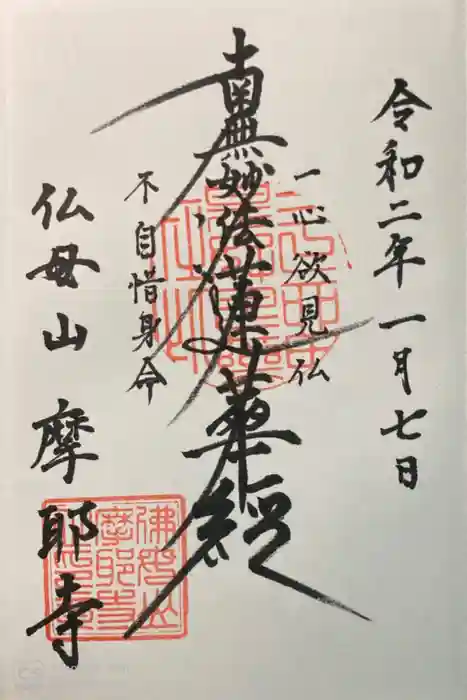 令和二年一月七日
一心欲見仏
南無妙法蓮華経
不自惜身命
仏母山 摩耶寺